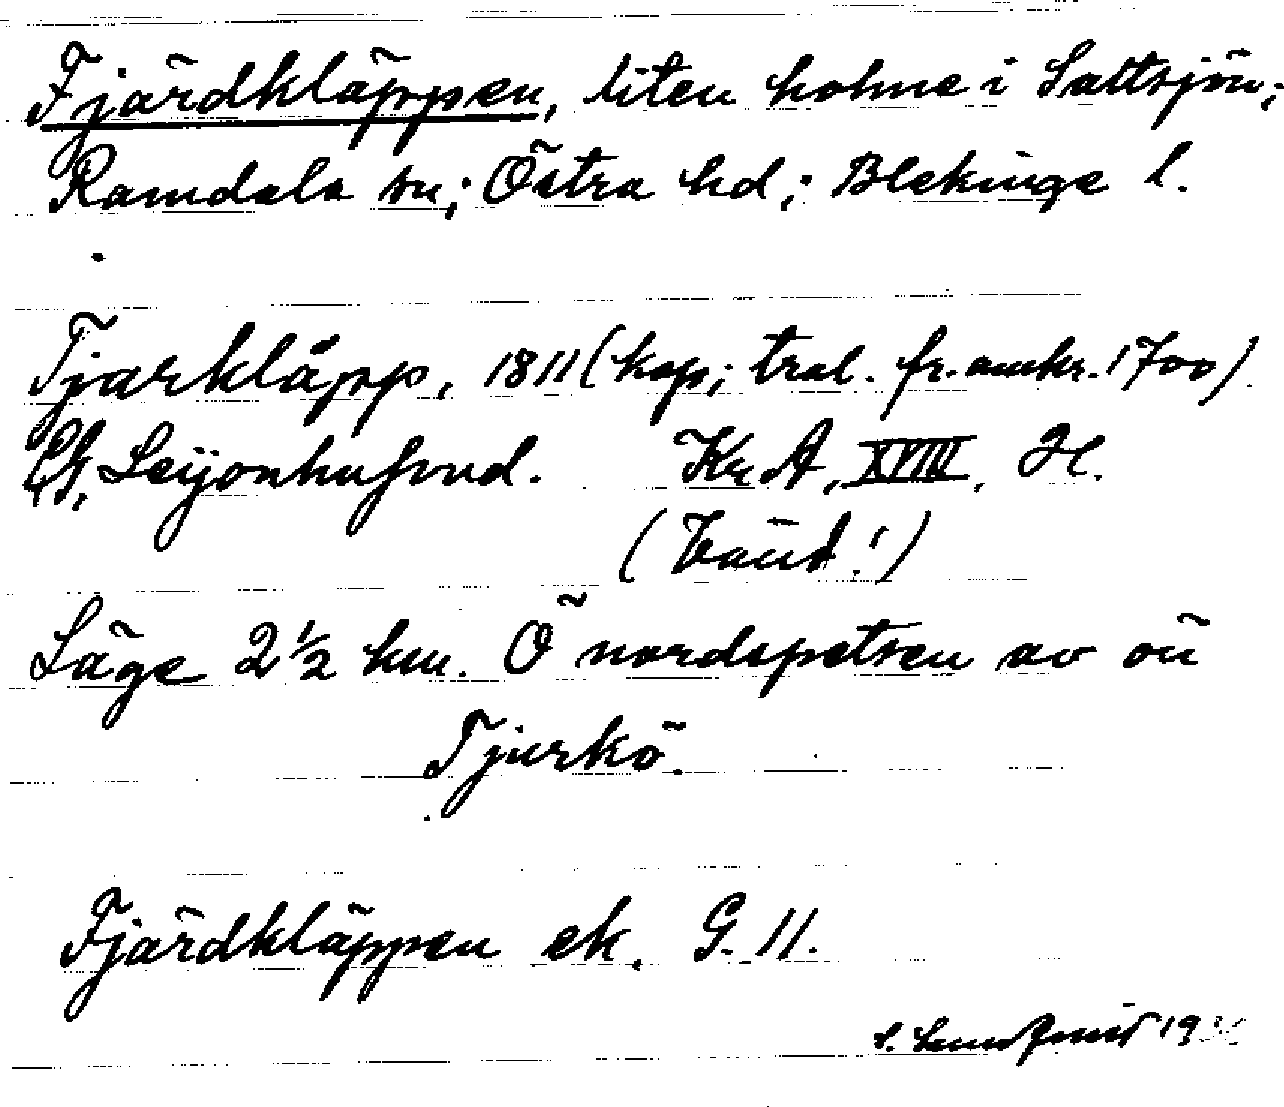 Fjärdkläppen, liten holme i Saltsjön;
Ramdala sn; Östra hd; Blekinge l.
Tjarkläpp, 1811 (kop; trol. fr. omkr. 1700)
Leijonhufvud. Kr A, XVIII, H.
Läge 2 1/2 km. Ö nordspetsen av ön
Tjurkö.
Fjärdkläppen ek. G. 11.